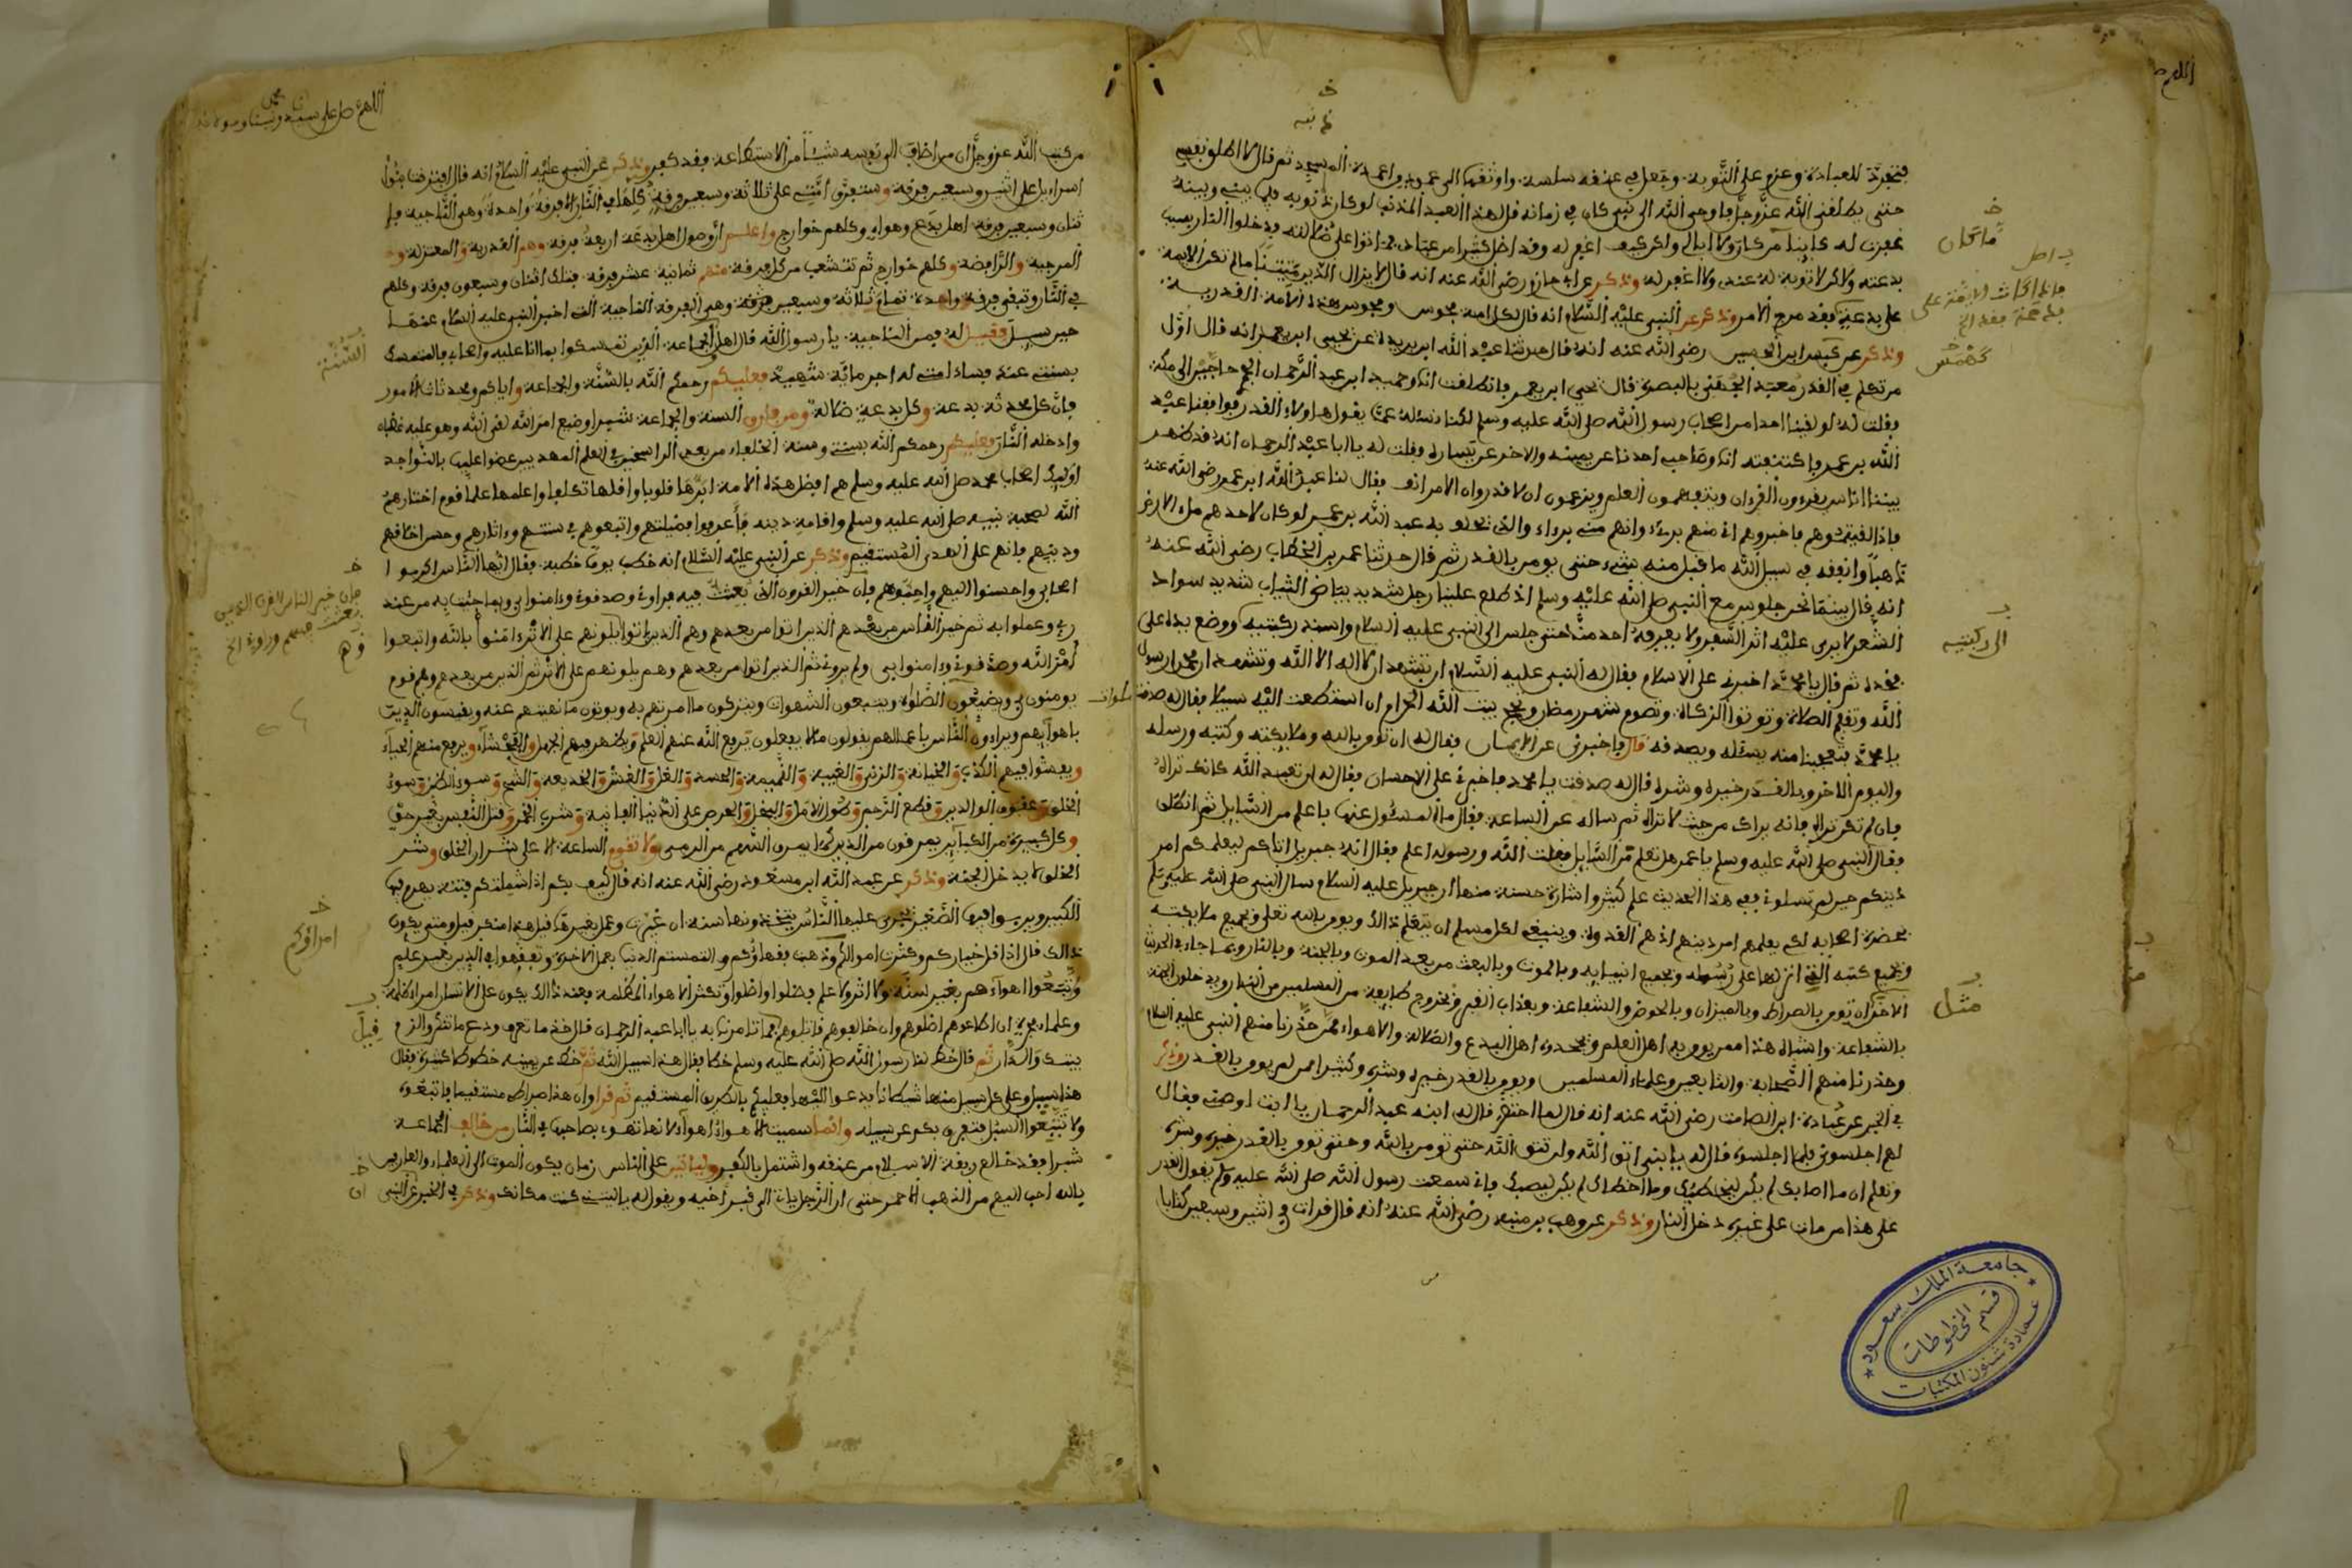 فتجرد للعبادة وعزم على التوبة وجعل في عنقه سلسة واوثقها الى عمود من اعمدة المسجد ثم قال لا اطلق نفسي
حتى يطلقني الله عز وجل فاوحى الله الى نبي كان في زمانه قل لهذا العبد المذنب لو كان ذنوبه فيما بيني وبينه
غفرت له ولا ابالي ولكن كيف اغفر له وقد اضل كثيرا من عبادي فماتوا على ضلالته ودخلوا النار بسبب
بدعته ولا توبة له عندي ولا اغفر له وذكر عن ابي حازم رضي الله عنه انه قال لا يزال الدين متينا ما لم تكن الايمة
على بدعة فقد مرج الامر وذكر عن النبي عليه السلام انه قال لكل امة مجوس ومجوس هذه الامة القدرية
وذكر عن كهمس ابن الحسن رضي الله عنه انه قال حدثنا عبد الله ابن بريدة عن يحيى ابن يعمر انه قال اول
من تكلم في القدر معبد الجهني بالبصرة قال يحيى ابن يعمر فانطلقت انا وحميد ابن عبد الرحمان الحميري حاجين الى مكة
فقلت له لو لقينا احدا من اصحاب رسول الله صلى الله عليه وسلم لكنا نسئله عما يقول هاولاء القدر فوافقنا عبد
الله بن عمر فاكتنفته انا وصاحبي احدنا عن يمينه والاخر عن يساره فقلت له يا ابا عبد الرحمان انه قد ظهر
بيننا اناس يقرءون القرءان ويتفهمون العلم ويزعمون ان لا قدر وان الامر انف فقال لنا عبد الله ابن عمر رضي الله عنه
فاذا لقيتموهم فاخبروهم اني منهم بريء وانهم مني برءاء والذي يحلف به عبد الله بن عمر لو كان لاحدهم ملء الارض
ذهبا وانفقه في سبيل الله ما قبل منه شيء حتى يومن بالقدر ثم قال حدثنا عمر بن الخطاب رضي الله عنه
انه قال بينما نحن جلوس مع النبي صلى الله عليه وسلم اذ طلع علينا رجل شديد بياض الثياب شديد سواد
الشعر لا يرى عليه اثر السفر ولا يعرفه احد منا حتى جلس الى النبي عليه السلام واسند ركبتيه ووضع يده على
فخذه ثم قال يا محمد اخبرني على الاسلام فقال له النبي عليه السلام ان تشهد ان لا اله الا الله وتشهد ان محمدا رسول
الله وتقيم الصلاة وتوتوا الزكاة وتصوم شهر رمظان وتحج بيت الله الحرام ان استطعت اليه سبيلا فقال له صدقت
يا محمد فتعجبنا منه يسئله ويصدقه قال فاخبرني عن الايمان فقال له ان تومن بالله وملايكته وكتبه ورسله
واليوم الاخر وبالقدر خيره وشره قال له صدقت يا محمد فاخبرني على الاحسان فقال له ان تعبد الله كانك تراه
فان لم تكن تراه فانه يراك من حيث لا تراه ثم ساله عن الساعة فقال ما المسئول عنها باعلم من السايل ثم انطلق
فقال النبي صلى الله عليه وسلم يا عمر هل تعلم من السايل فقلت الله ورسوله اعلم فقال انه جبريل اتاكم ليعلمكم امر
دينكم حين لم تسلوه ففي هذا الحديث علم كثير واشارة حسنة منها ان جبريل عليه السلام سال النبي صلى الله عليه وسلم
بحضرة اصحابه لكي يعلمهم امر دينهم اذ هم القدوة وينبغي لكل مسلم ان يتعلم ذالك ويومن بالله تعلى وبجميع ملايكته
وبجميع كتبه التي انزلها على رسوله وبجميع انبيايه وبالموت وبالبعث من بعد الموت وبالجنة وبالنار وبما جاء في الحديث
الاخر ان تومن بالصراط وبالميزان وبالحوض والشفاعة وبعذاب القبر وبخروج طايفة من المسلمين من النار ويدخلون الجنة
بالشفاعة واشباه هذا ممن يومن به اهل العلم ويجحده اهل البدع والضلالة والاهواء ممن حذرنا منهم النبي عليه السلام
وحذرنا منهم الصحابة والتابعين وعلماء المسلمين ويومن بالقدر خيره وشره وكثير ممن لم يومن بالقدر وذكر
في الخبر عن عبادة ابن الصامت رضي الله عنه انه قال لما احتضر قال له ابنه عبد الرحمان يا ابت اوصني فقال
لهم اجلسوني فلما اجلسوه قال له يا بني اتق الله ولن تتق الله حتى تومن بالله وحتى تومن بالقدر خيره وشره
وتعلم ان ما اصابك لم يكن ليخطئك وما اخطاك لم يكن ليصيبك فاني سمعت رسول الله صلى الله عليه وسلم يقول القدر
على هذا من مات على غيره دخل النار وذكر عن وهب بن منبه رضي الله عنه انه قال قرات في اثنين وسبعين كتابا
ما كان
كهمس
الى ركبتيه
مثل
جامعة الملك سعود
قسم المخطوطات
عمادة شئون المكتبات
من كتب الله عز وجل ان من اضاف الى نفسه شيئا من الاستطاعة فقد كفر وذكر عن النبي عليه السلام انه قال افترقت بنوا
اسراءيل على اثنين وسبعين فرقة وستفترق امتي على ثلاثة وسبعين فرقة كلها في النار الا فرقة واحدة وهي الناجية
ثنان وسبعين فرقة اهل بدع وهواء وكلهم خوارج واعلم ان اصول اهل بدعة اربعة فرقة وهم القدرية والمعتزلة
المرجية والرافضة وكلهم خوارج ثم تتشعب من كل فرقة منهم ثمانية عشر فرقة فتلك اثنان وسبعون فرقة وكلهم
في النار وتبقى فرقة واحدة تمام ثلاثة وسبعين فرقة وهي الفرقة الناجية التي اخبر النبي عليه السلام عنها
حين سيل فقيل له فمن الناجية يا رسول الله قال اهل الجماعة الذين تمسكوا بما انا عليه واصحابي فالمتمسك
بسنتي عند فساد امتي له اجر ماية شهيد فعليكم رحمكم الله بالسنة والجماعة واياكم ومحدثات الامور
فان كل محدثة بدعة وكل بدعة ضلالة ومن فارق السنة والجماعة شبرا وضيع امر الله لقي الله وهو عليه غضبان
وادخله النار فعليكم رحمكم الله بسنتي وسنة الخلفاء من بعدي الراسخين في العلم المهديين عضوا عليها بالنواجد
اوليك اصحاب محمد صلى الله عليه وسلم هم افضل هذه الامة ابرها قلوبا واقلها تكلفا واعلمها علما قوم اختارهم
الله لصحبة نبيه صلى الله عليه وسلم واقامة دينه فاعرفوا فضيلتهم واتبعوهم في سنتهم وءاثارهم وحسن اخلاقهم
ودينهم فانهم على الهدى المستقيم وذكر عن النبي عليه السلام انه خطب يوما خطبة فقال ايها الناس اكرموا
اصحابي واحسنوا اليهم واحبوهم فان خير القرون الذي بعثت فيه فراوني وصدقوني وءامنوا بي وبما جئت به من عند
ربي وعملوا به ثم خير الناس من بعدهم الذين اتوا من بعدهم وهم الذين يلونهم على الاثر ءامنوا بالله واتبعوا
امر الله وصدقوني وءامنوا بي ولم يروني ثم الذين اتوا من بعدهم وهم يلونهم على الاثر ثم الذين من بعدهم وهم قوم
يومنون بي ويضيعون الصلوة ويتبعون الشهوات ويتركون ما امرتهم به ويوتون ما نهيتهم عنه ويقيسون الدين
باهوايهم ويراءون الناس باعمالهم يقولون ما لا يفعلون يرفع الله عنهم العلم ويظهر فيهم الجهل والفحشاء ويرفع منهم الحياء
ويفشوا فيهم الكذب والخيانة والزنى والغيبة والنميمة والحسد والغل والغش والخديعة والشح وسوء الظن وسوء
الخلق وعقوق الوالدين وقطع الرحم وطول الامل والبخل والحرص على الدنيا الفانية وشرب الخمر وقتل النفس بغير حق
وكل كبيرة من الكباير يمرقون من الدين كما يمرق السهم من الرمى ولا تقوم الساعة الا على شرار الخلق وشر
الخلق لا يدخل الجنة وذكر عن عبد الله ابن مسعود رضي الله عنه انه قال كيف بكم اذا شملتكم فتنة يهرم فيها
الكبير ويربوا فيها الصغير تجري عليها الناس يتخذونها سنة ان غيرت وعمل بغيرها قيل هذا منكر قيل ومتى يكون
ذالك قال اذا قل خياركم وكثرت اموالكم وذهبت فقهاؤكم والتمستم الدنيا بعمل الاخرة وتفقهوا في الدين بغير علم
وعلماء فجرة ان اطاعوهم اضلوهم وان خالفوهم قاتلوهم فما تامرنا به يا ابا عبد الرحمان قال خذ ما تعرف ودع ما تنكر والزم
بيتك والدار ثم قال خط لنا رسول الله صلى الله عليه وسلم خطا فقال هذا سبيل الله ثم خط عن يمينه خطوطا كثيرة فقال
هذا سبيل وعلى كل سبيل منها شيطانا يدعوا اليها فعليكم بالطريق المستقيم ثم قرا وان هذا صراطي مستقيما فاتبعوه
ولا تتبعوا السبل فتفرق بكم عن سبيله وانما سميت الاهواء اهواء لانها تهوي بصاحبها في النار من خالف الجماعة
شبرا فقد خالع ربقة الاسلام من عنقه واشتمل بالكفر ولياتين على الناس زمان يكون الموت الى العلماء والعارفين
بالله احب اليهم من الذهب الاحمر حتى ان الرجل ياتي الى قبر اخيه ويقول له يا ليتني كنت مكانك وذكر في الخبر عن النبي
السنة
قيل